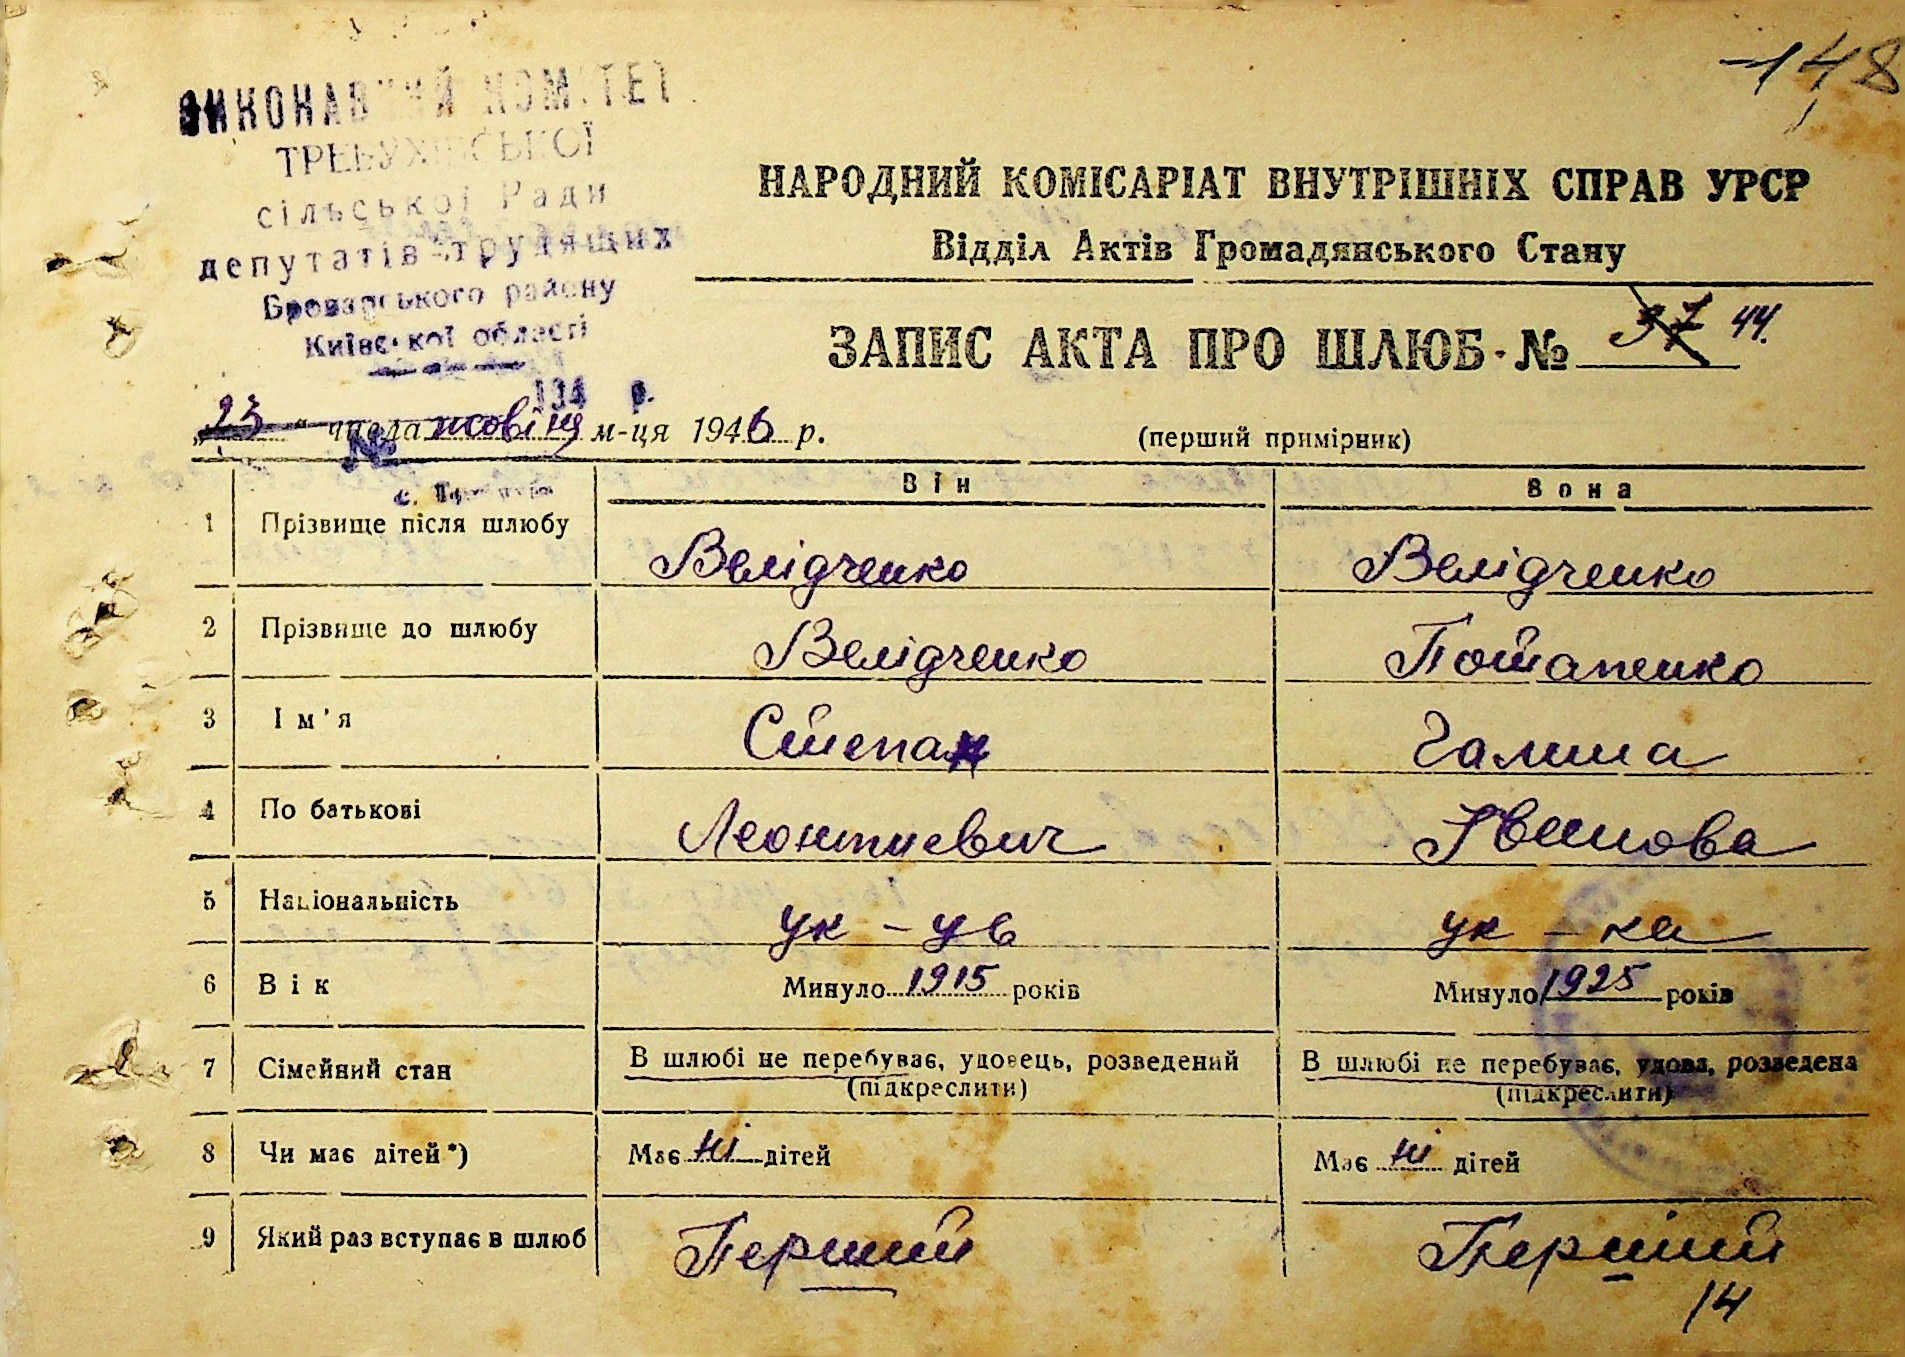 148
ВИКОНАВЧИЙ КОМІТЕТ
ТРЕБУХІВСЬКОЇ
сільської Ради
депутатів трудящих
Броварського району
Київської області
194 р.
№
НАРОДНИЙ КОМІСАРІАТ ВНУТРІШНІХ СПРАВ УРСР
Відділ Актів Громадянського Стану
ЗАПИС АКТА ПРО ШЛЮБ - № 37 44.
„23“ числа жовтня м-ця 1946 р. (перший примірник)
Він Вона
1 Прізвище після шлюбу Велідченко Велідченко
2 Прізвище до шлюбу Велідченко Потапенко
3 Ім'я Степан Галина
4 По батькові Леонтиевич Івапова
5 Національність ук - ць ук - ка
6 Вік Минуло 1915 років Минуло 1925 років
7 Сімейний стан В шлюбі не перебуває, удовець, розведений В шлюбі не перебуває, удова, розведена
(підкреслити) (підкреслити)
8 Чи має дітей*) Має ні дітей Має ні дітей
9 Який раз вступає в шлюб Перший Перший
14